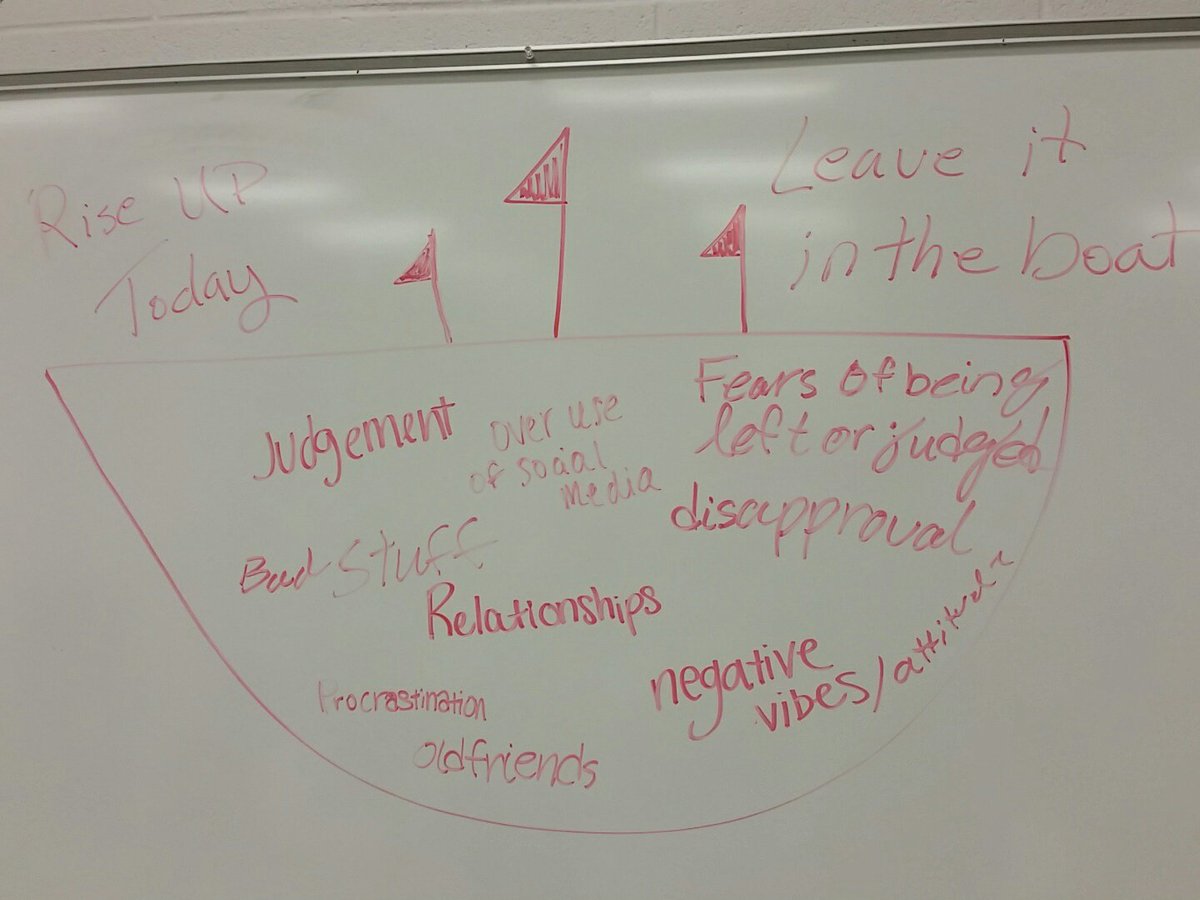 Rise UP
Today
Leave it
in the boat
Judgement
over use
of social
media
Fears of being
left or judged
disapproval
Bad Stuff
Relationships
Procrastination
old friends
negative
vibes/attitude